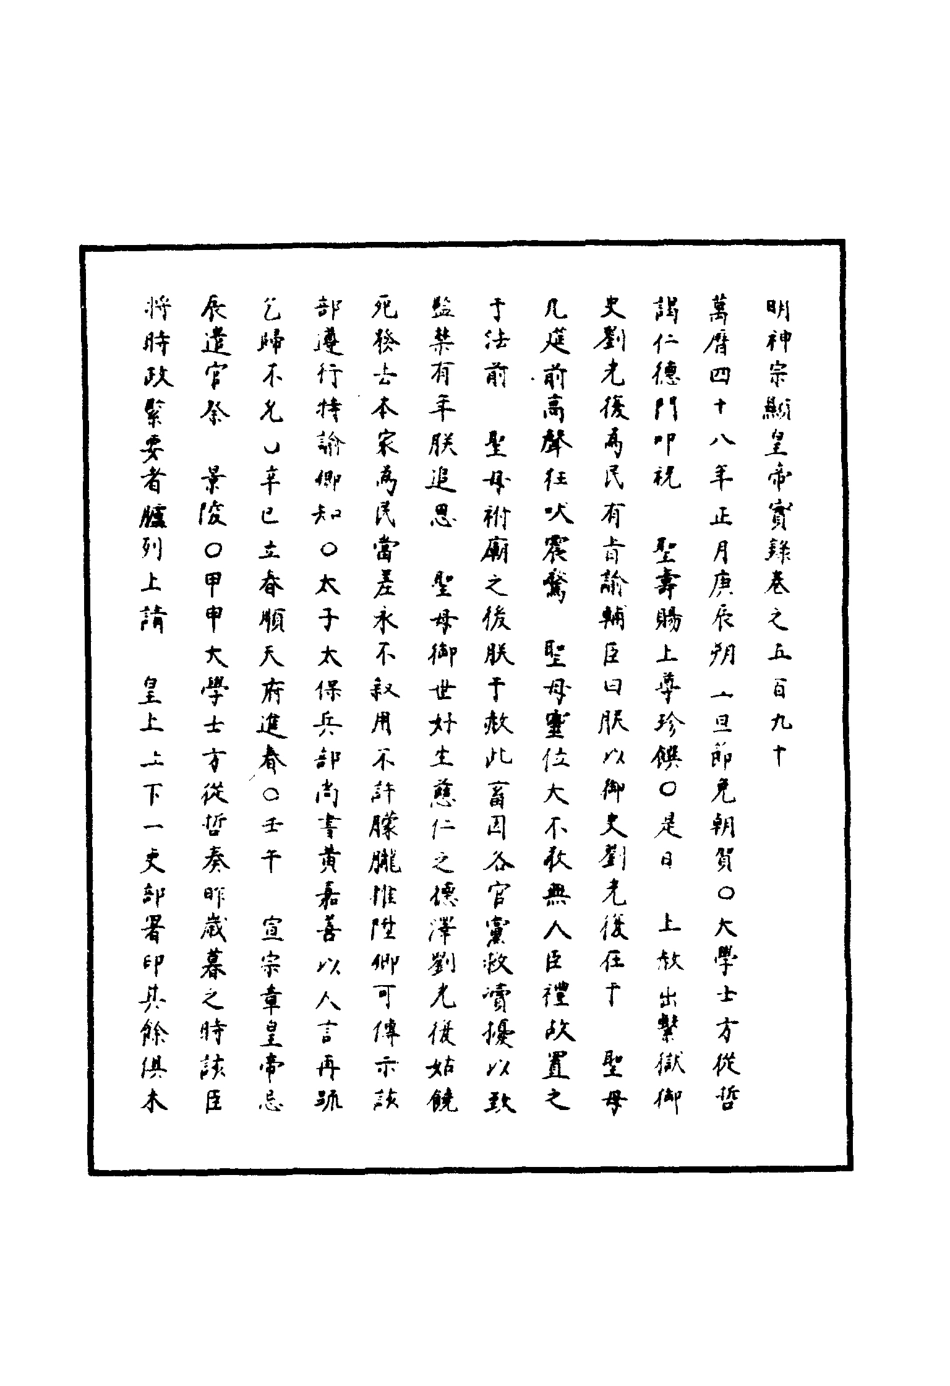 明神宗顯皇帝實錄卷之五百九十
萬曆四十八年正月庚辰朔上旦節免朝賀○大學士方從哲
詣仁德門叩祝　聖壽賜上尊珍饌○是日　上赦出繫獄御
史劉光復為民有旨諭輔臣曰朕以御史劉光復在于　聖母
几筵前高聲狂吠震驚　聖母靈位大不敬無人臣禮故置之
于法前　聖母祔廟之後朕于赦此畜因各官黨救瀆擾以致
監禁有年朕追思　聖母御世好生慈仁之德澤劉光復姑饒
死發去本家為民當差永不敘用不許朦朧推陞卿可傳示該
部遵行特諭卿知○太子太保兵部尚書黃嘉善以人言再疏
乞歸不允○辛巳立春順天府進春○壬午　宣宗章皇帝忌
辰遣官祭　景陵○甲申大學士方從哲奏昨歲暮之時該臣
將時政緊要者臚列上請　皇上止下一吏部署印其餘俱未